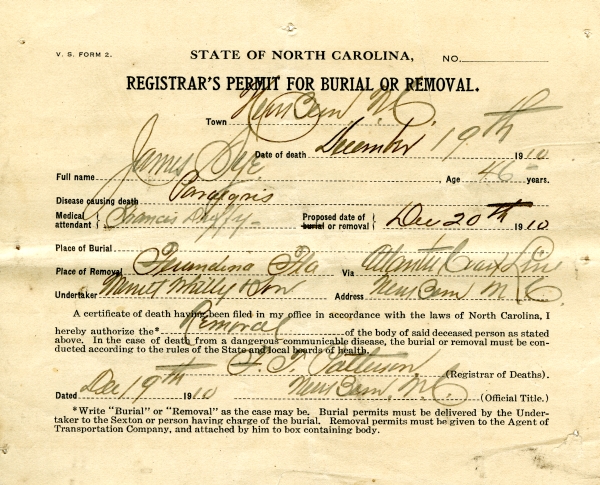 V. S. FORM 2. STATE OF NORTH CAROLINA, NO.
REGISTRAR'S PERMIT FOR BURIAL OR REMOVAL.
Town New Bern N.C.
Date of death December 19th 1910
Full name James Dye Age 46 years.
Disease causing death
Medical attendant Francis Duffy Proposed date of burial or removal Dec 20th 1910
Place of Burial
Place of Removal Fernandina Fla Via Atlantic Coast Line
Undertaker Whitty & Son Address New Bern N.C.
A certificate of death having been filed in my office in accordance with the laws of North Carolina, I
hereby authorize the* Removal of the body of said deceased person as stated
above. In the case of death from a dangerous communicable disease, the burial or removal must be con-
ducted according to the rules of the State and local boards of health.
F. T. Patterson (Registrar of Deaths).
Dated Dec 19th 1910 New Bern, N.C. (Official Title.)
*Write "Burial" or "Removal" as the case may be. Burial permits must be delivered by the Under-
taker to the Sexton or person having charge of the burial. Removal permits must be given to the Agent of
Transportation Company, and attached by him to box containing body.